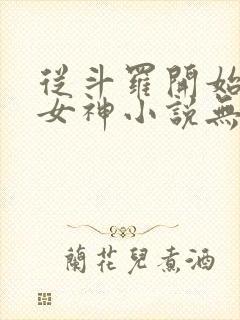 從斗羅開始
女神小說無
蘭花兒煮酒